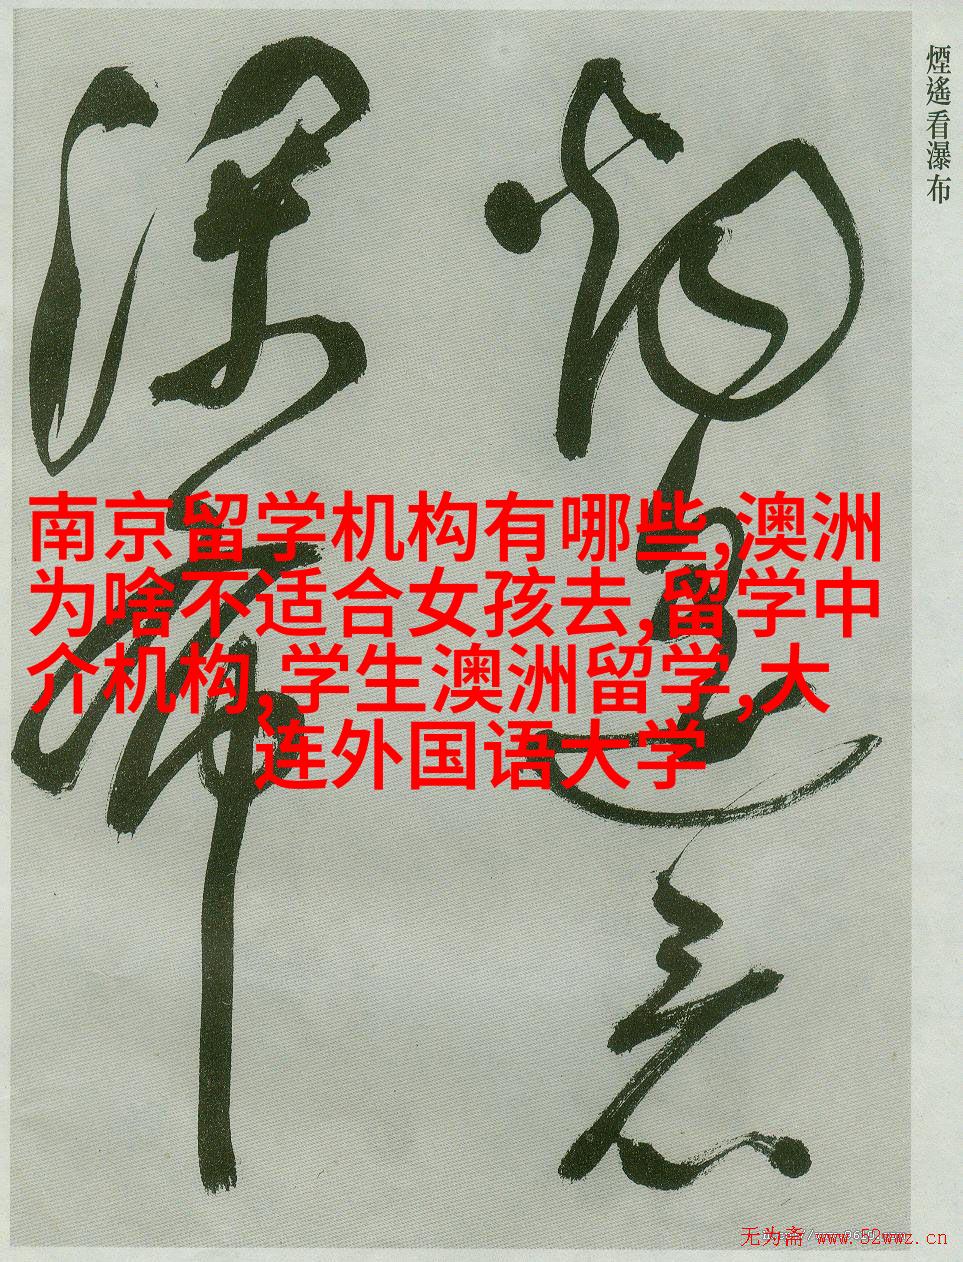 煙遙看瀑布
南京留学机构有哪些,澳洲
为啥不适合女孩去,留学中
介机构,学生澳洲留学,大
连外国语大学
煙遙看
瀑布
无为斋 www.52wwz.cn